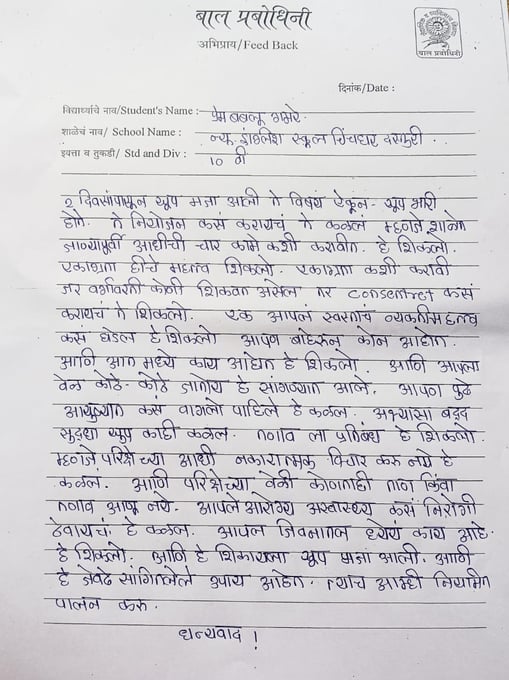 बाल प्रबोधिनी
अभिप्राय/Feed Back
बाल प्रबोधिनी
दिनांक/Date :
विद्यार्थ्याचे नाव/Student's Name : प्रेम बबलू गमरे.
शाळेचं नाव/ School Name : न्यू इंग्लिश स्कूल चिंचघर
इयत्ता व तुकडी/ Std and Div : 10 वी
2 दिवसांपासून खूप मजा आली ते विषय ऐकून. खूप भारी
होते. ते नियोजन कसं करायचं ते कळलं म्हणजे शाळेत
जाण्यापूर्वी आधीची चार कामे कशी करावीत. हे शिकलो.
एकाग्रता हीचे महत्त्व शिकलो. एकाग्रता कशी करावी
जर वर्गावरती कोणी शिकवत असेल तर consentret कसं
करायचं ते शिकलो. एक आपलं स्वतःचं व्यक्तीमहत्त्व
कसं घडेल हे शिकलो आपण बाहेरून कोन आहोत.
आणि आत मध्ये काय आहोत हे शिकलो. आणि आपला
वेळ कोठे-कोठे जातोय हे सांगण्यात आले. आपण पुढे
आयुष्यात कसं वागलो पाहिले हे कळलं. अभ्यासा बद्दल
सुद्धा खूप काही कळलं. तणाव ला प्रतिबंध हे शिकलो.
म्हणजे परिक्षेच्या आधी नकारात्मक विचार करू नये हे
कळलं. आणि परिक्षेच्या वेळी कोणताही ताण किंवा
तणाव आणू नये. आपले आरोग्य अस्वास्थ्य कसं निरोगी
ठेवायचं हे कळलं. आपलं जिवनातलं ध्येय काय आहे.
हे शिकलो. आणि हे शिकायला खूप मजा आली. आणि
हे जेवढे सांगितलेले उपाय आहेत. त्यांच आम्ही नियमित
पालन करू.
धन्यवाद !